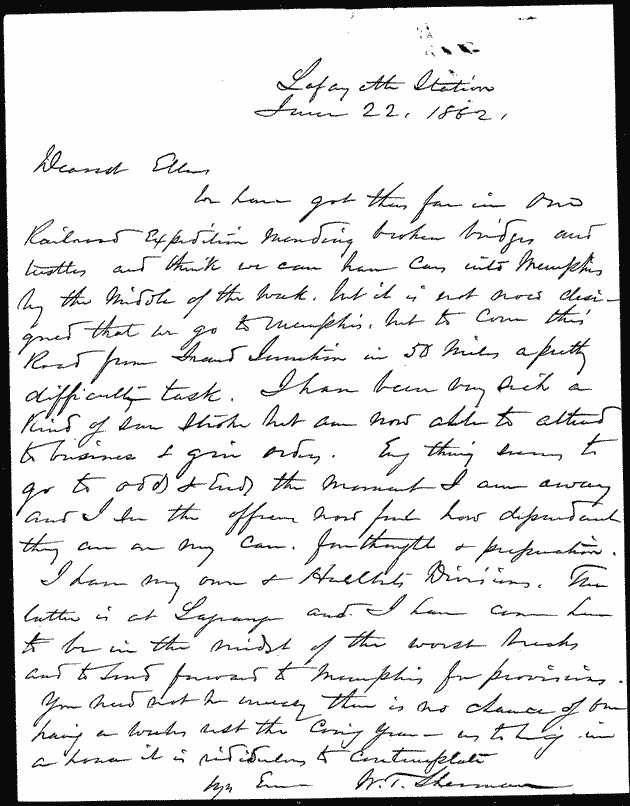 Lafayette Station
June 22, 1862.
Dearest Ellen
We have got thus far in our
Railroad Expedition mending broken bridges and
trestles and think we can have Cars into Memphis
by the Middle of the Week. but it is not now desi-
gned that we go to Memphis. but to Cover this
Road from Grand Junction in 50 Miles a pretty
difficult task. I have been very sick a
Kind of sun Stroke but am now able to attend
to business & give orders. Every thing seems to
go to odds & Ends the moment I am away
and I see the officers now feel how dependant
they are on my care. forethought & preparation.
I have my own & Hurlbuts Divisions. The
latter is at Lagrange and I have come here
to be in the midst of the worst breaks
and to send forward to Memphis for provisions.
You need not be uneasy there is no chance of our
having a weeks rest the Coming Year - as to being in
a home it is ridiculous to Contemplate
W.T. Sherman